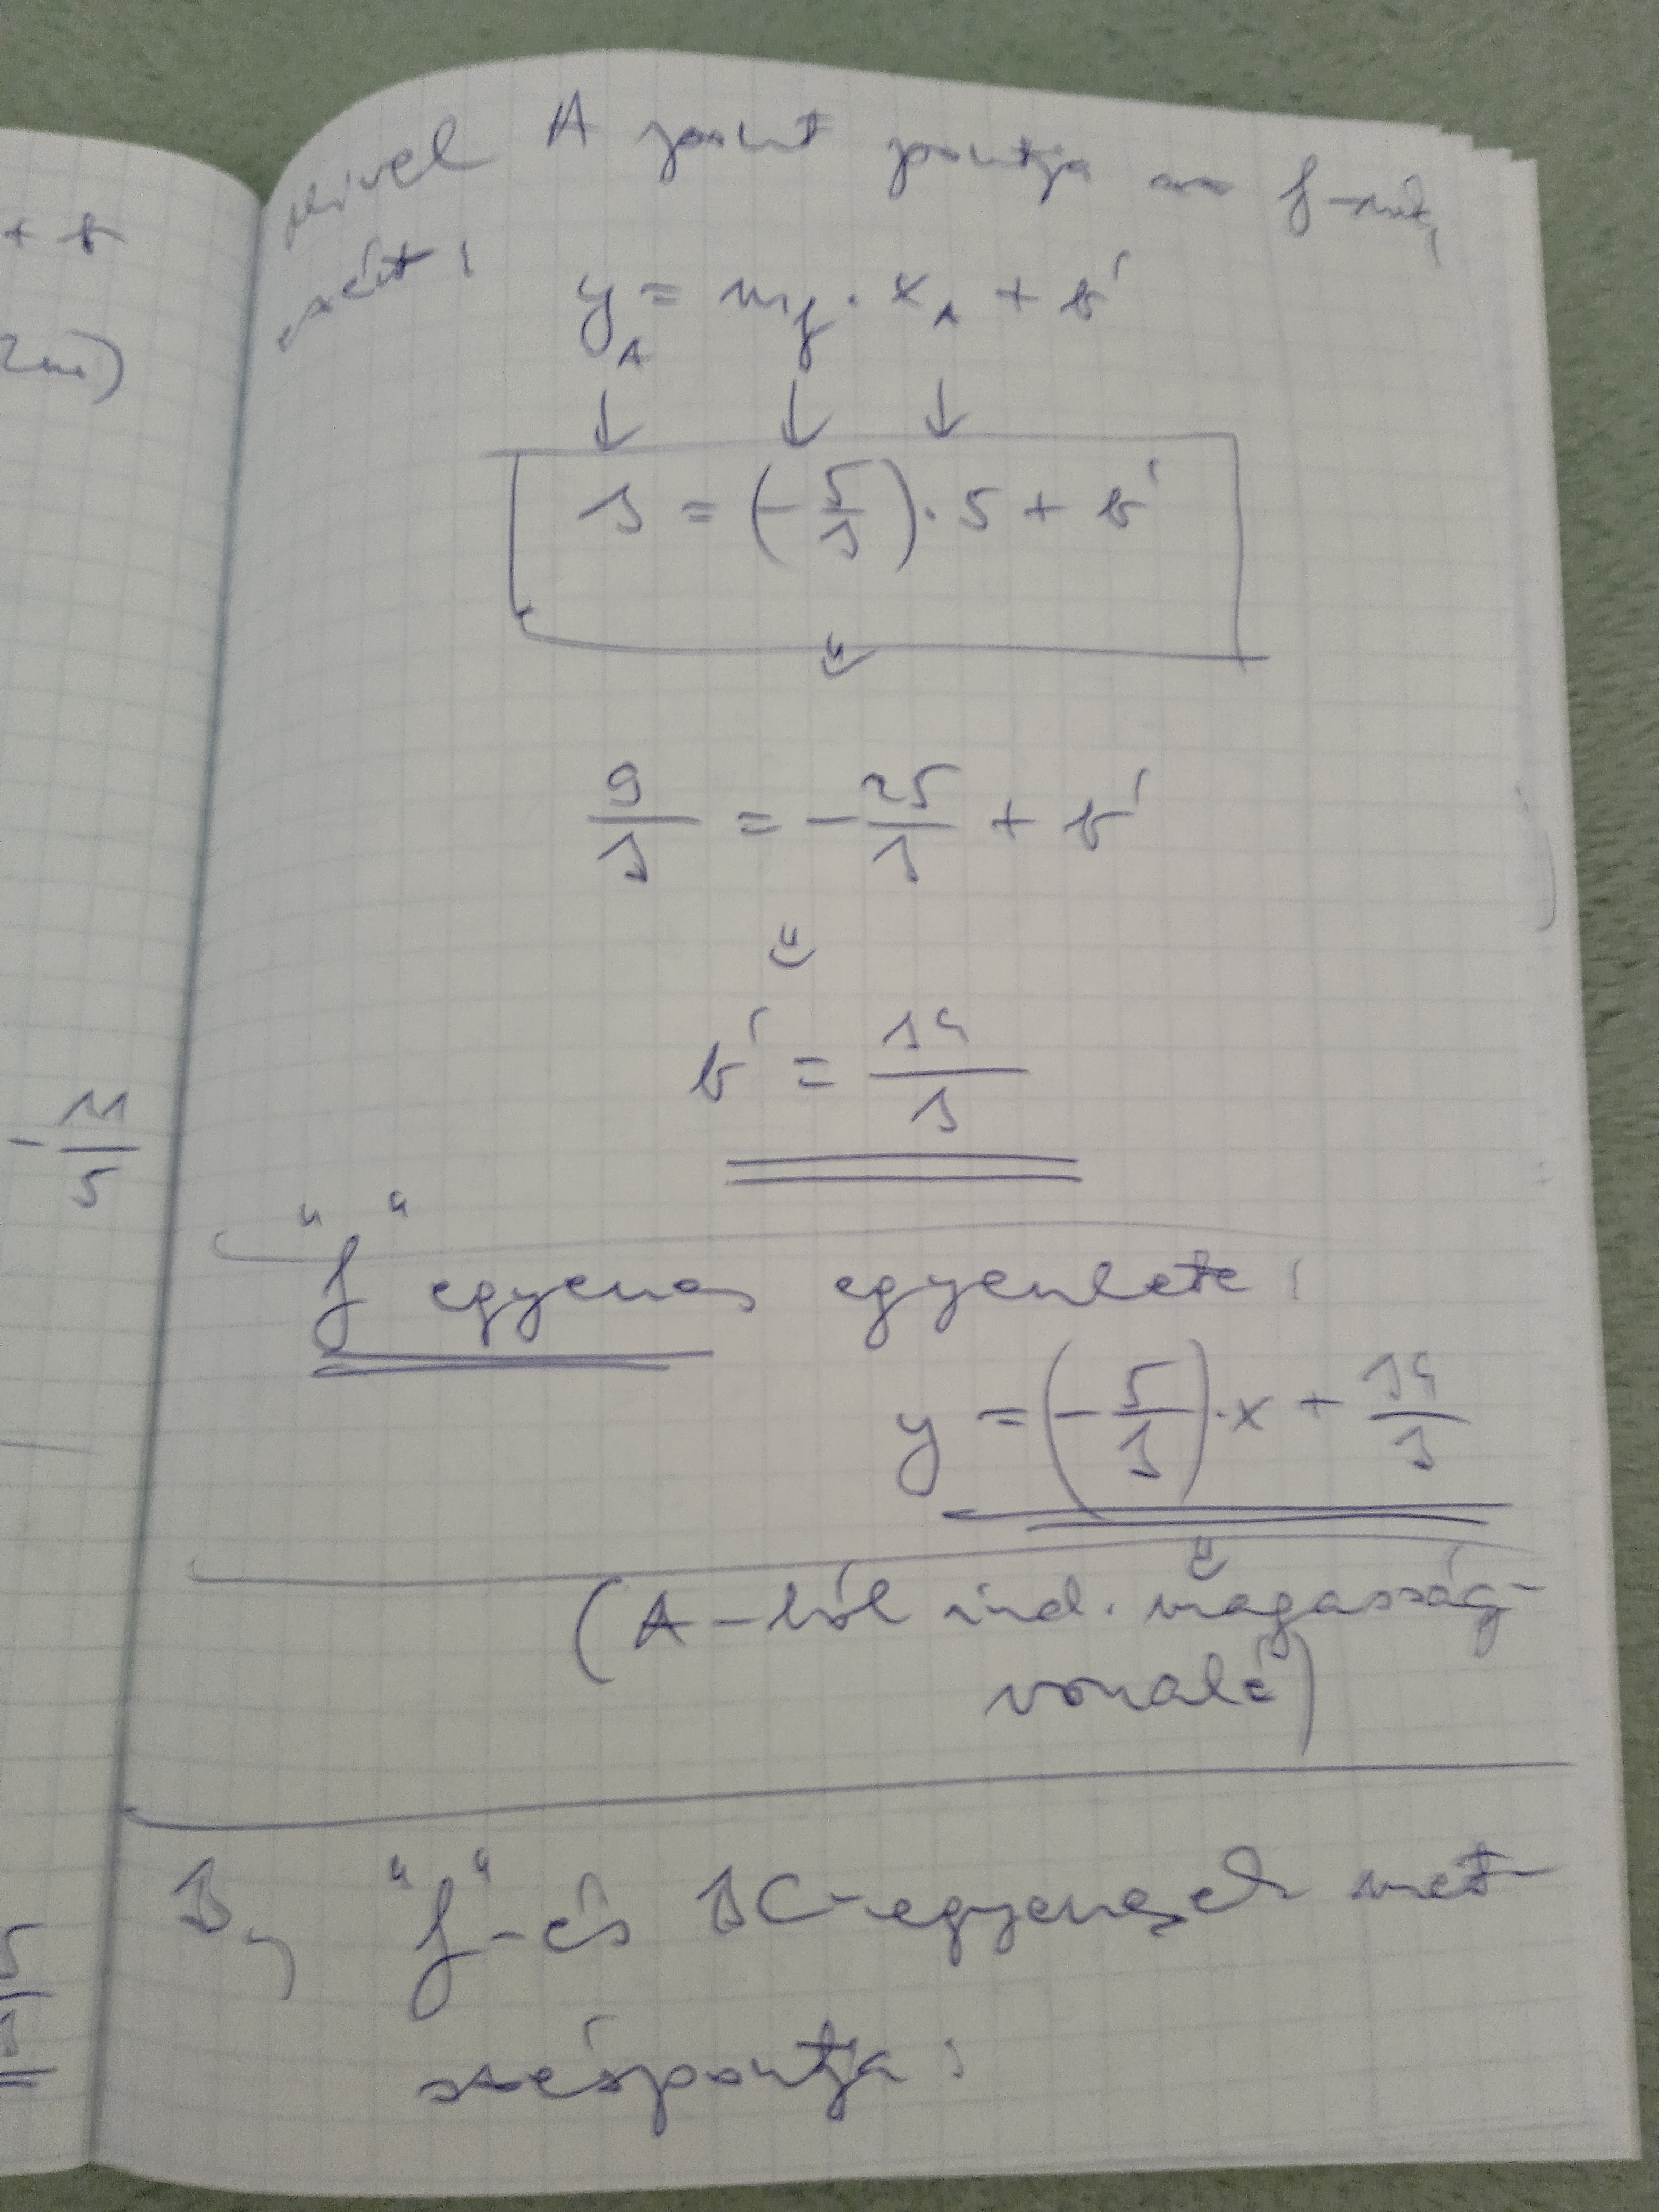 + b
mivel A pont pontja az f-nek,
ezért:
y_A = m_f · x_A + b'
↓ ↓ ↓
3 = (-5/3) · 5 + b'
9/3 = -25/3 + b'
b' = 34/3
- 11/5
"f" egyenes egyenlete:
y = (-5/3) · x + 34/3
(A-ból ind. magasság-
vonalé)
B, "f"-és BC-egyenesek met-
széspontja: